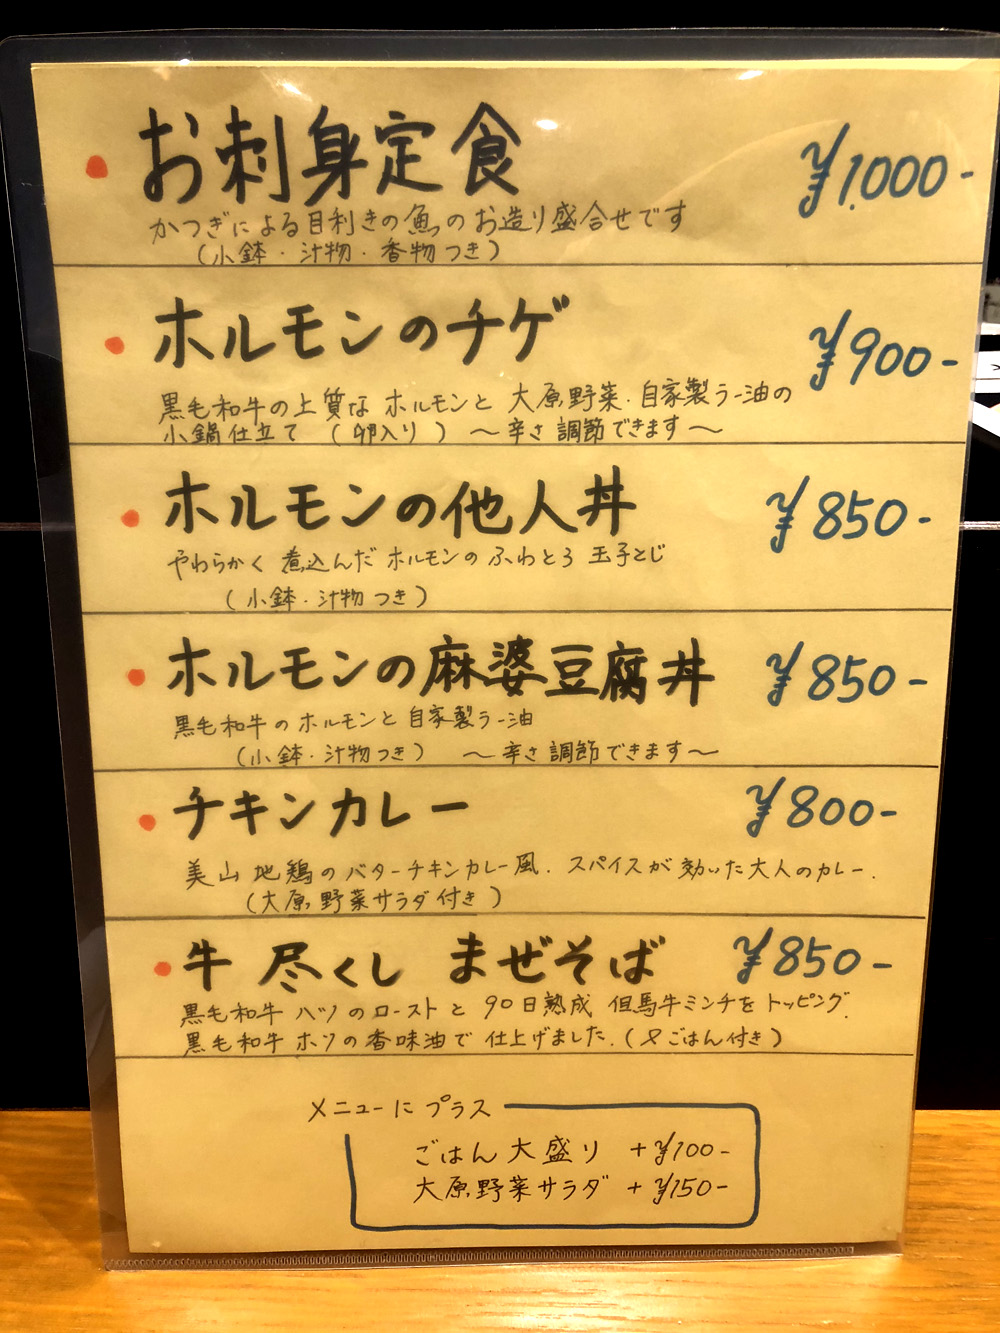 お刺身定食 ¥1,000-
かつぎによる目利きの魚のお造り盛合せです
(小鉢・汁物・香物つき)
ホルモンのチゲ ¥900-
黒毛和牛の上質なホルモンと大原野菜・自家製ラー油の
小鍋仕立て (卵入り) 〜辛さ調節できます〜
ホルモンの他人丼 ¥850-
やわらかく煮込んだホルモンのふわとろ玉子とじ
(小鉢・汁物つき)
ホルモンの麻婆豆腐丼 ¥850-
黒毛和牛のホルモンと自家製ラー油
(小鉢・汁物つき) 〜辛さ調節できます〜
チキンカレー ¥800-
美山地鶏のバターチキンカレー風.スパイスが効いた大人のカレー.
(大原野菜サラダ付き)
牛尽くしまぜそば ¥850-
黒毛和牛ハツのローストと90日熟成但馬牛ミンチをトッピング.
黒毛和牛ホソの香味油で仕上げました.(〆ごはん付き)
メニューにプラス
ごはん大盛り +¥100-
大原野菜サラダ +¥150-